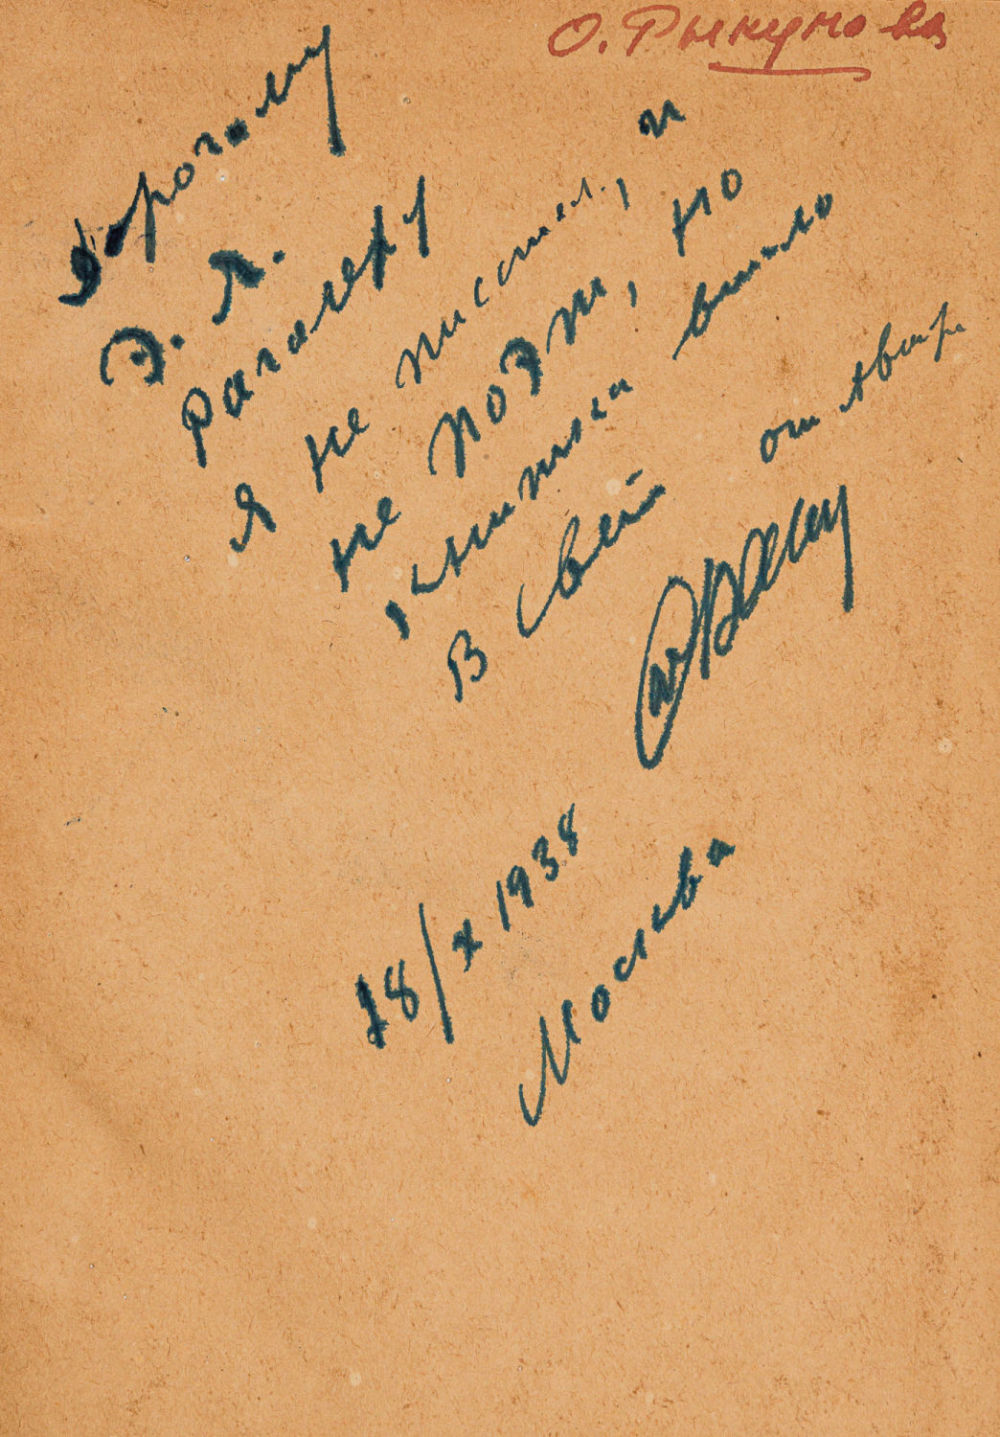 О. Рыкунова
Дорогому
Э. Л.
Рагалеру
Я не писатель, и
не поэт, но
книжка вышла
В свет
от автора
18/X 1938
Москва